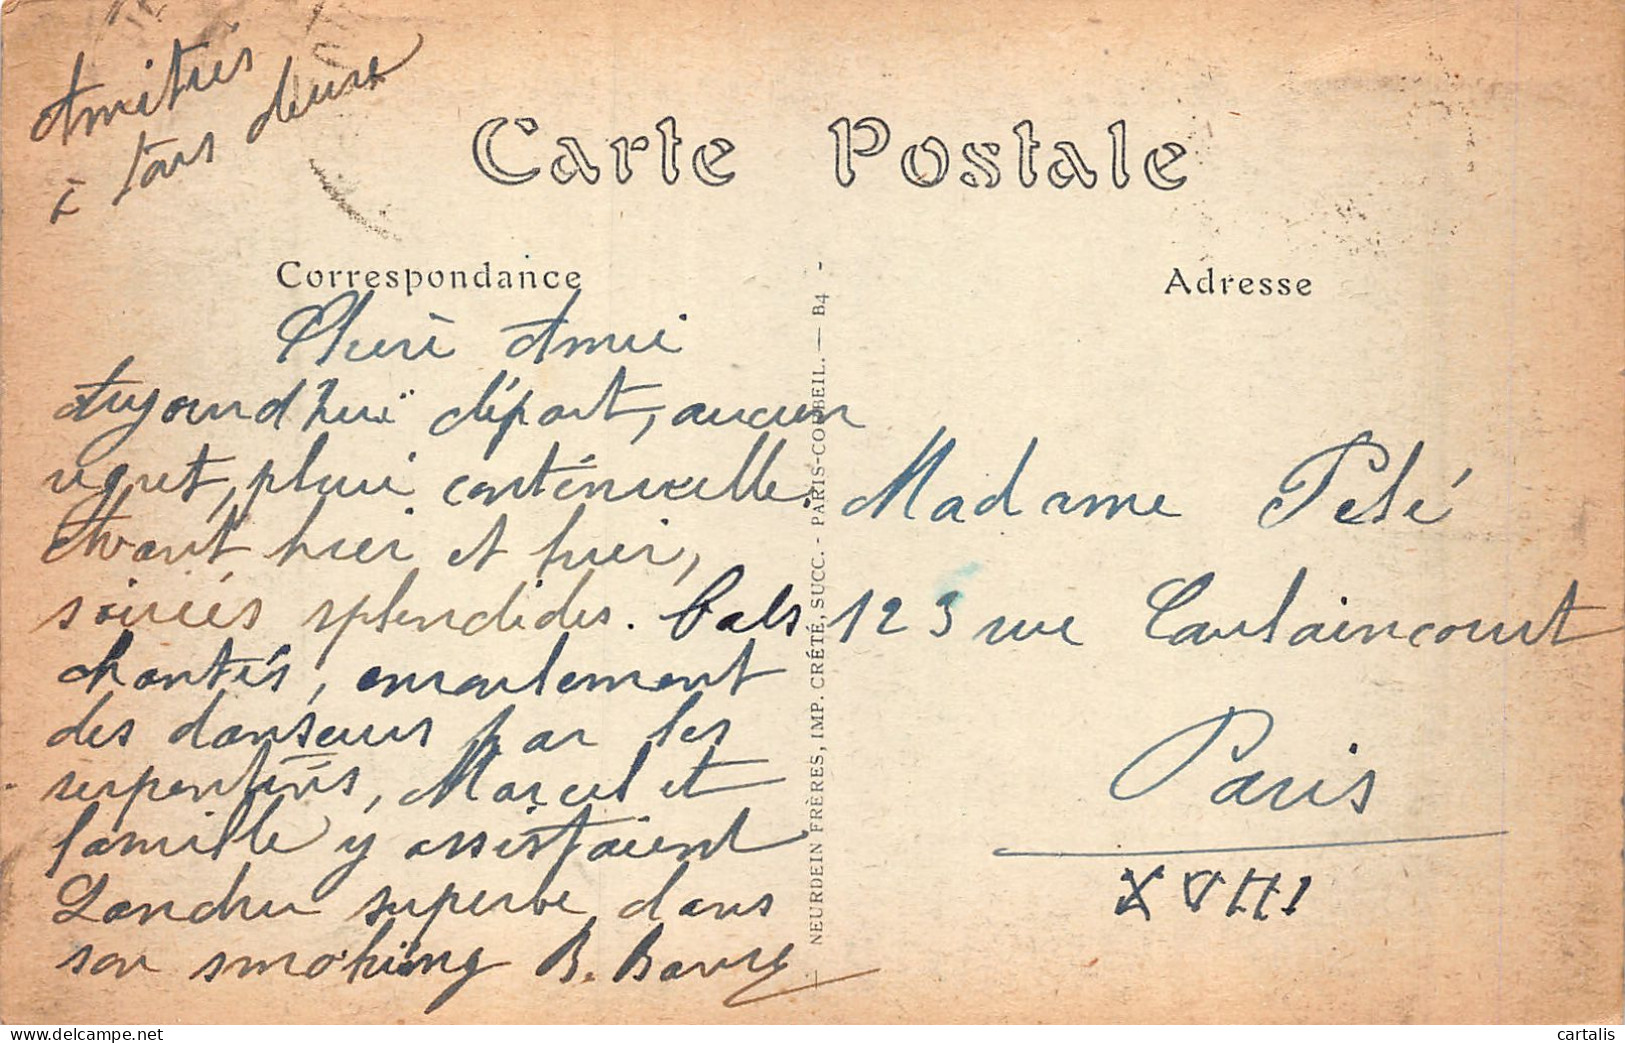 Amitiés
à tous deux
Carte Postale
Correspondance
Adresse
Chère Amie
Aujourd'hui départ, aucun
regret, pluie continuelle.
Avant hier et hier,
soirées splendides. Bals
chantés, enroulement
des danseurs par les
serpentins, Marcel et
famille y assistaient
Landru superbe dans
son smoking B.
NEURDEIN FRÈRES, IMP. CRÉTÉ, SUCC. - PARIS-CORBEIL. — B4 -
Madame
123 rue Caulaincourt
Paris
XVIII
cartalis